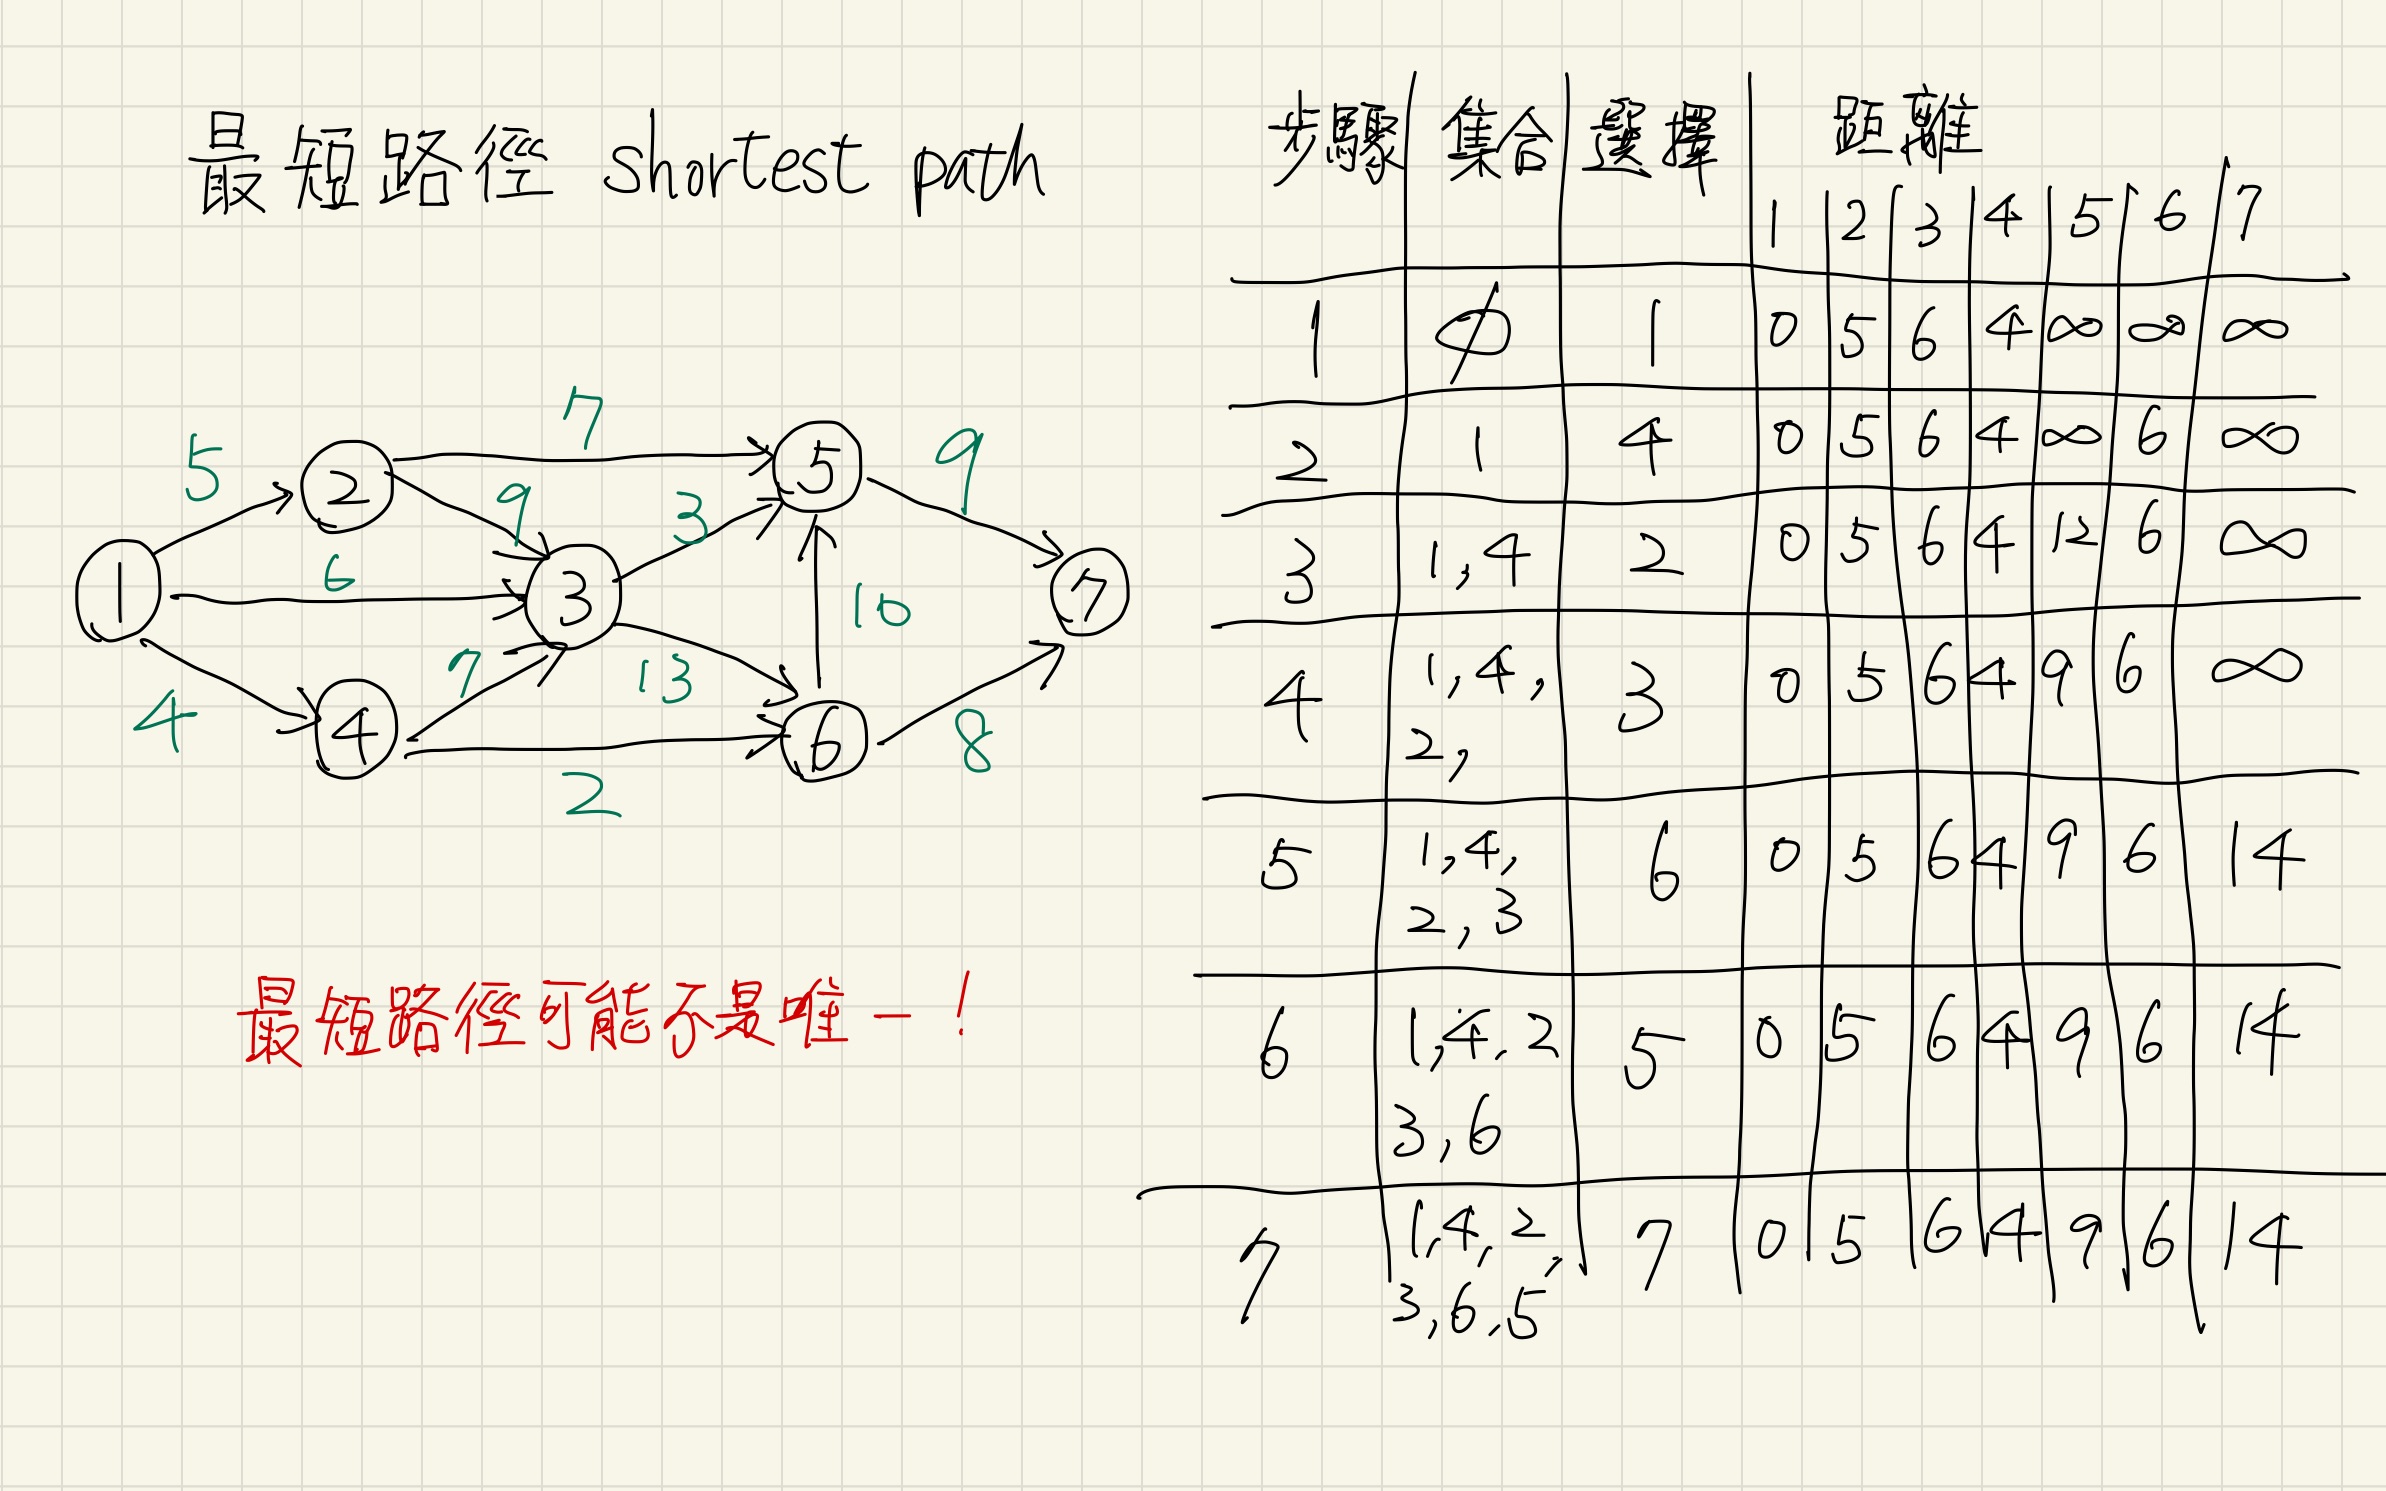 最短路径 shortest path
7
5
9
9
3
6
10
7
13
4
8
2
1 2 3 4 5 6 7
最短路径可能不是唯一!
步驟 集合 選擇 距離
1 2 3 4 5 6 7
1 ∅ 1 0 5 6 4 ∞ ∞ ∞
2 1 4 0 5 6 4 ∞ 6 ∞
3 1,4 2 0 5 6 4 12 6 ∞
4 1,4, 3 0 5 6 4 9 6 ∞
2,
5 1,4, 6 0 5 6 4 9 6 14
2,3
6 1,4,2 5 0 5 6 4 9 6 14
3,6
7 1,4,2, 7 0 5 6 4 9 6 14
3,6,5